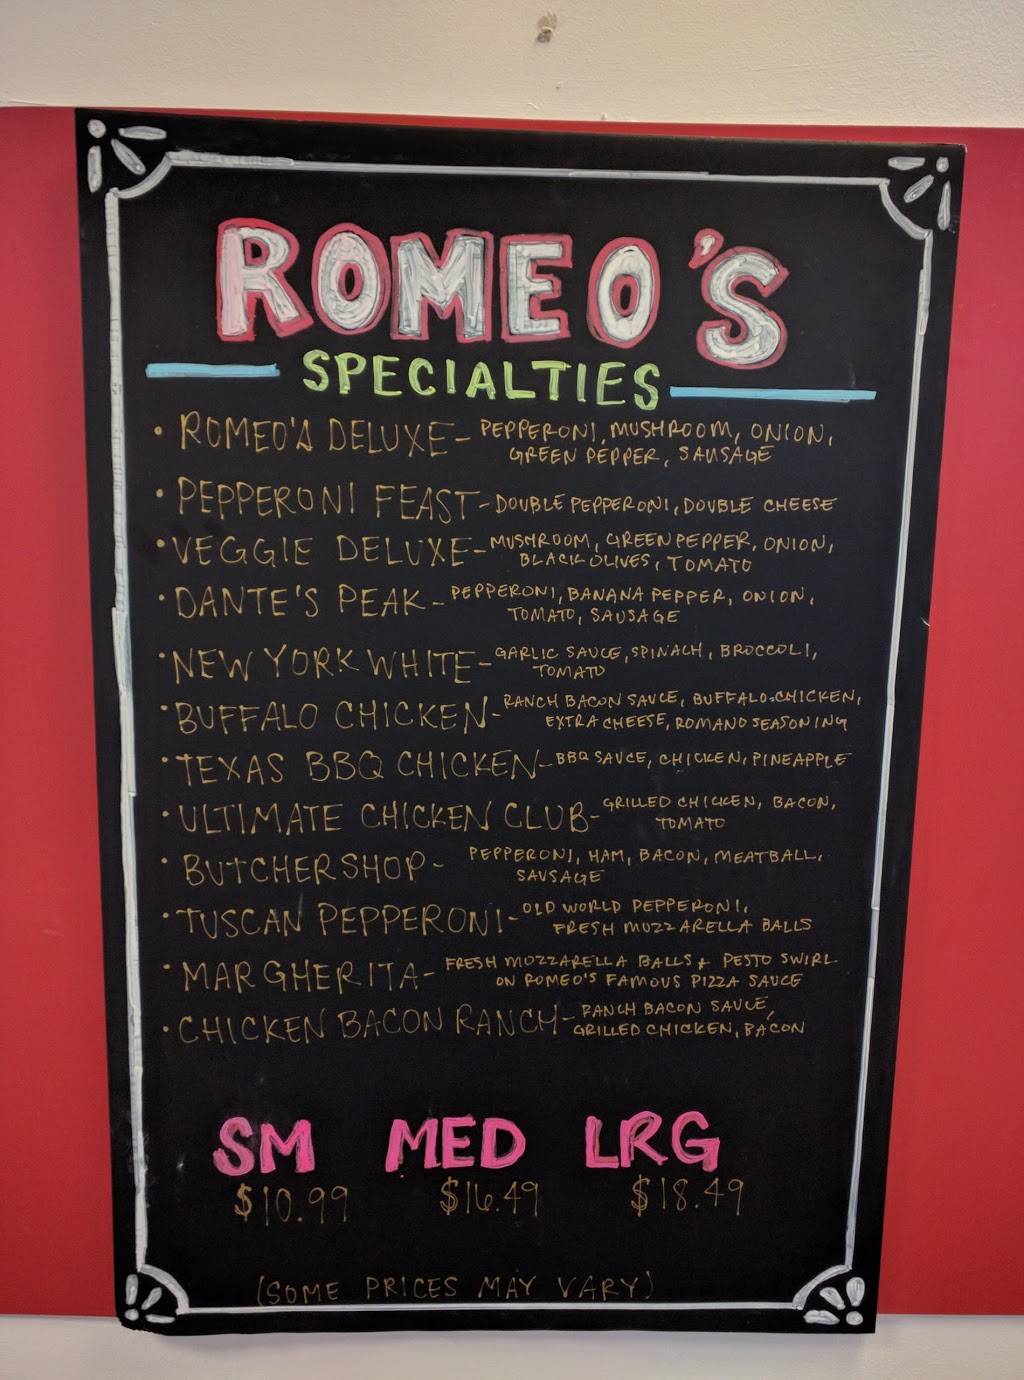 ROMEO'S
SPECIALTIES
• ROMEO'S DELUXE - PEPPERONI, MUSHROOM, ONION,
GREEN PEPPER, SAUSAGE
• PEPPERONI FEAST - DOUBLE PEPPERONI, DOUBLE CHEESE
• VEGGIE DELUXE - MUSHROOM, GREEN PEPPER, ONION,
BLACK OLIVES, TOMATO
• DANTE'S PEAK - PEPPERONI, BANANA PEPPER, ONION,
TOMATO, SAUSAGE
• NEW YORK WHITE - GARLIC SAUCE, SPINACH, BROCCOLI,
TOMATO
• BUFFALO CHICKEN - RANCH BACON SAUCE, BUFFALO CHICKEN,
EXTRA CHEESE, ROMANO SEASONING
• TEXAS BBQ CHICKEN - BBQ SAUCE, CHICKEN, PINEAPPLE
• ULTIMATE CHICKEN CLUB - GRILLED CHICKEN, BACON,
TOMATO
• BUTCHER SHOP - PEPPERONI, HAM, BACON, MEATBALL,
SAUSAGE
• TUSCAN PEPPERONI - OLD WORLD PEPPERONI,
FRESH MOZZARELLA BALLS
• MARGHERITA - FRESH MOZZARELLA BALLS & PESTO SWIRL
ON ROMEO'S FAMOUS PIZZA SAUCE
• CHICKEN BACON RANCH - RANCH BACON SAUCE,
GRILLED CHICKEN, BACON
SM MED LRG
$10.99 $16.49 $18.49
(SOME PRICES MAY VARY)